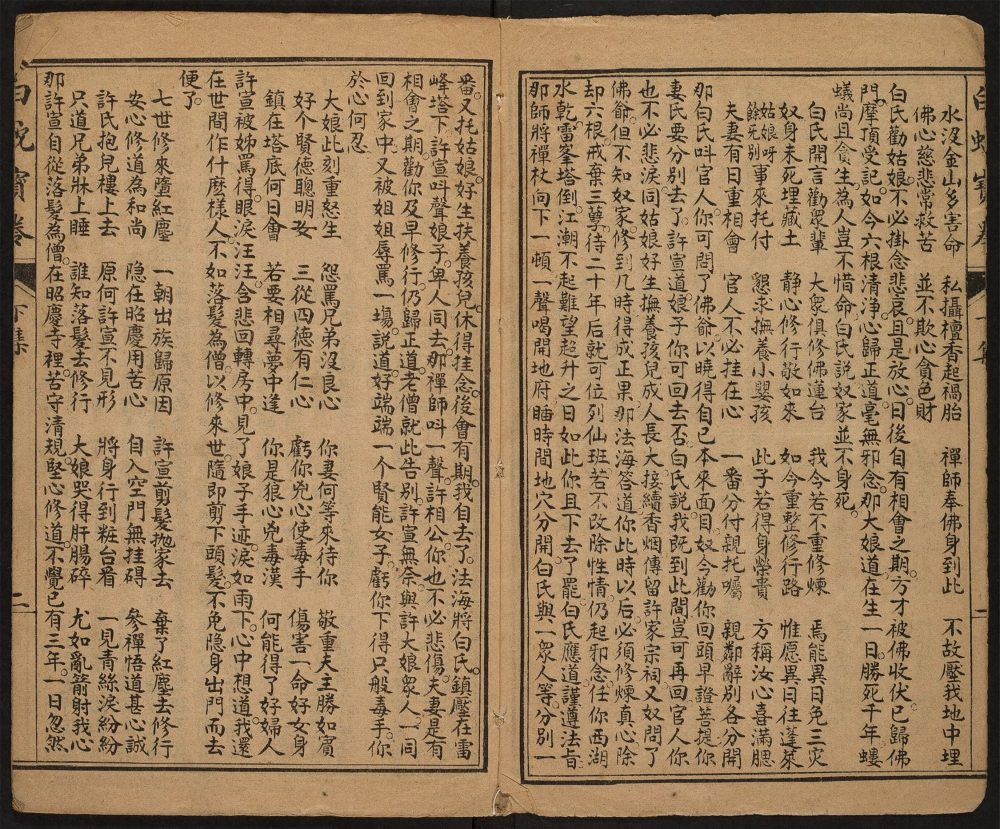 白蛇宝卷
下集
水没金山多害命　私攝檀香起禍胎　禪師奉佛身到此　不故壓我地中埋
佛心慈悲常救苦　並不欺心貪色財
白氏勸姑娘不必掛念悲哀且是放心日後自有相會之期方才被佛收伏已歸佛
門摩頂受記如今六根清淨心歸正道毫無邪念那大娘道在生一日勝死千年螻
蟻尚且貪生為人豈不惜命白氏説奴家並不身死
白氏開言勸衆輩　大衆俱修佛蓮台　我今若不重修煉　焉能異日免三灾
奴身未死埋藏土　静心修行敬如來　如今重整修行路　惟愿異日往蓬萊
姑娘呀餘无别事來托付　懇求撫養小嬰孩　此子若得身榮貴　方稱汝心喜滿腮
夫妻有日重相會　官人不必挂在心　一番分付親托囑　親鄰辭别各分開
那白氏叫官人你可問了佛爺以曉得自己本來面目奴今勸你回頭早證菩提你
妻氏要分别去了許宣道娘子你可回去否白氏説我旣到此間豈可再回官人你
也不必悲淚同姑娘好生撫養孩兒成人長大接續香烟傳留許家宗祠又奴問了
佛爺但不知奴家修到几時得成正果那法海答道你此時以后必須修煉真心除
却六根戒棄三孽待二十年后就可位列仙班若不改除性情仍起邪念任你西湖
水乾雷峯塔倒江潮不起難望超升之日如此你且下去了罷白氏應道謹遵法旨
那師將禪杖向下一頓一聲喝開地府時間地穴分開白氏與一衆人等分别一
番又托姑娘好生扶養孩兒休得挂念後會有期我自去了法海將白氏鎮壓在雷
峰塔下許宣叫聲娘子卑人同去那禪師叫一聲許相公你也不必悲傷夫妻是有
相會之期勸你及早修行仍歸正道老僧就此告别許宣無奈與許大娘衆人一同
回到家中又被姐姐辱罵一塲説道好端端一个賢能女子虧你下得只般毒手你
於心何忍
大娘此刻重怒生　怨罵兄弟没良心　你妻何等來待你　敬重夫主勝如賓
好个賢德聰明女　三從四德有仁心　虧你兇心使毒手　傷害一命好女身
鎮在塔底何日會　若要相尋夢中逢　你是狠心兇毒漢　何能得了好婦人
許宣被姊罵得眼淚汪汪含悲回轉房中見了娘子手迹淚如雨下心中想道我還
在世間作什麽樣人不如落髮為僧以修來世隨即剪下頭髮不免隱身出門而去
便了
七世修來墮紅塵　一朝出族歸原因　許宣剪髮抛家去　棄了紅塵去修行
安心修道為和尚　隐在昭慶用苦心　自入空門無挂碍　參禪悟道甚心誠
許氏抱兒樓上去　原何許宣不見形　將身行到粧台看　一見青絲淚紛紛
只道兄弟牀上睡　誰知落髮去修行　大娘哭得肝腸碎　尤如亂箭射我心
那許宣自從落髮為僧在昭慶寺裡苦守清規堅心修道不覺已有三年一日忽然
白蛇寳卷
下集
二